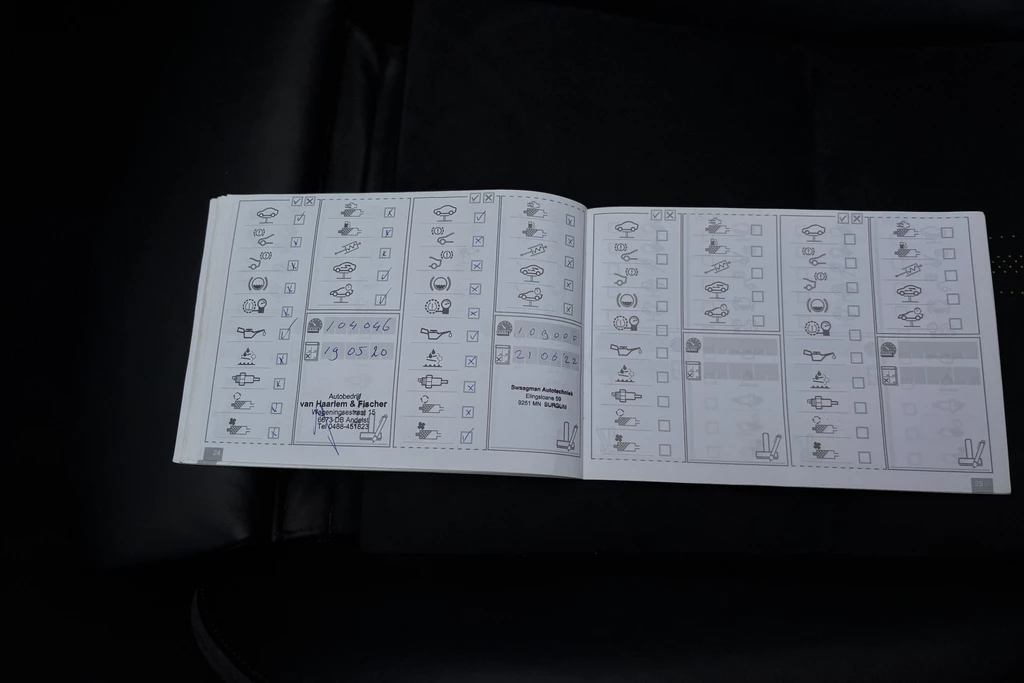 104046
19 05 20
Autobedrijf
van Haarlem & Fischer
Wageningsestraat 15
6673 DB Andelst
Tel 0488-451823
24
21 06 22
Swaagman Autotechniek
Elingsloane 59
9251 MN BURGUM
25